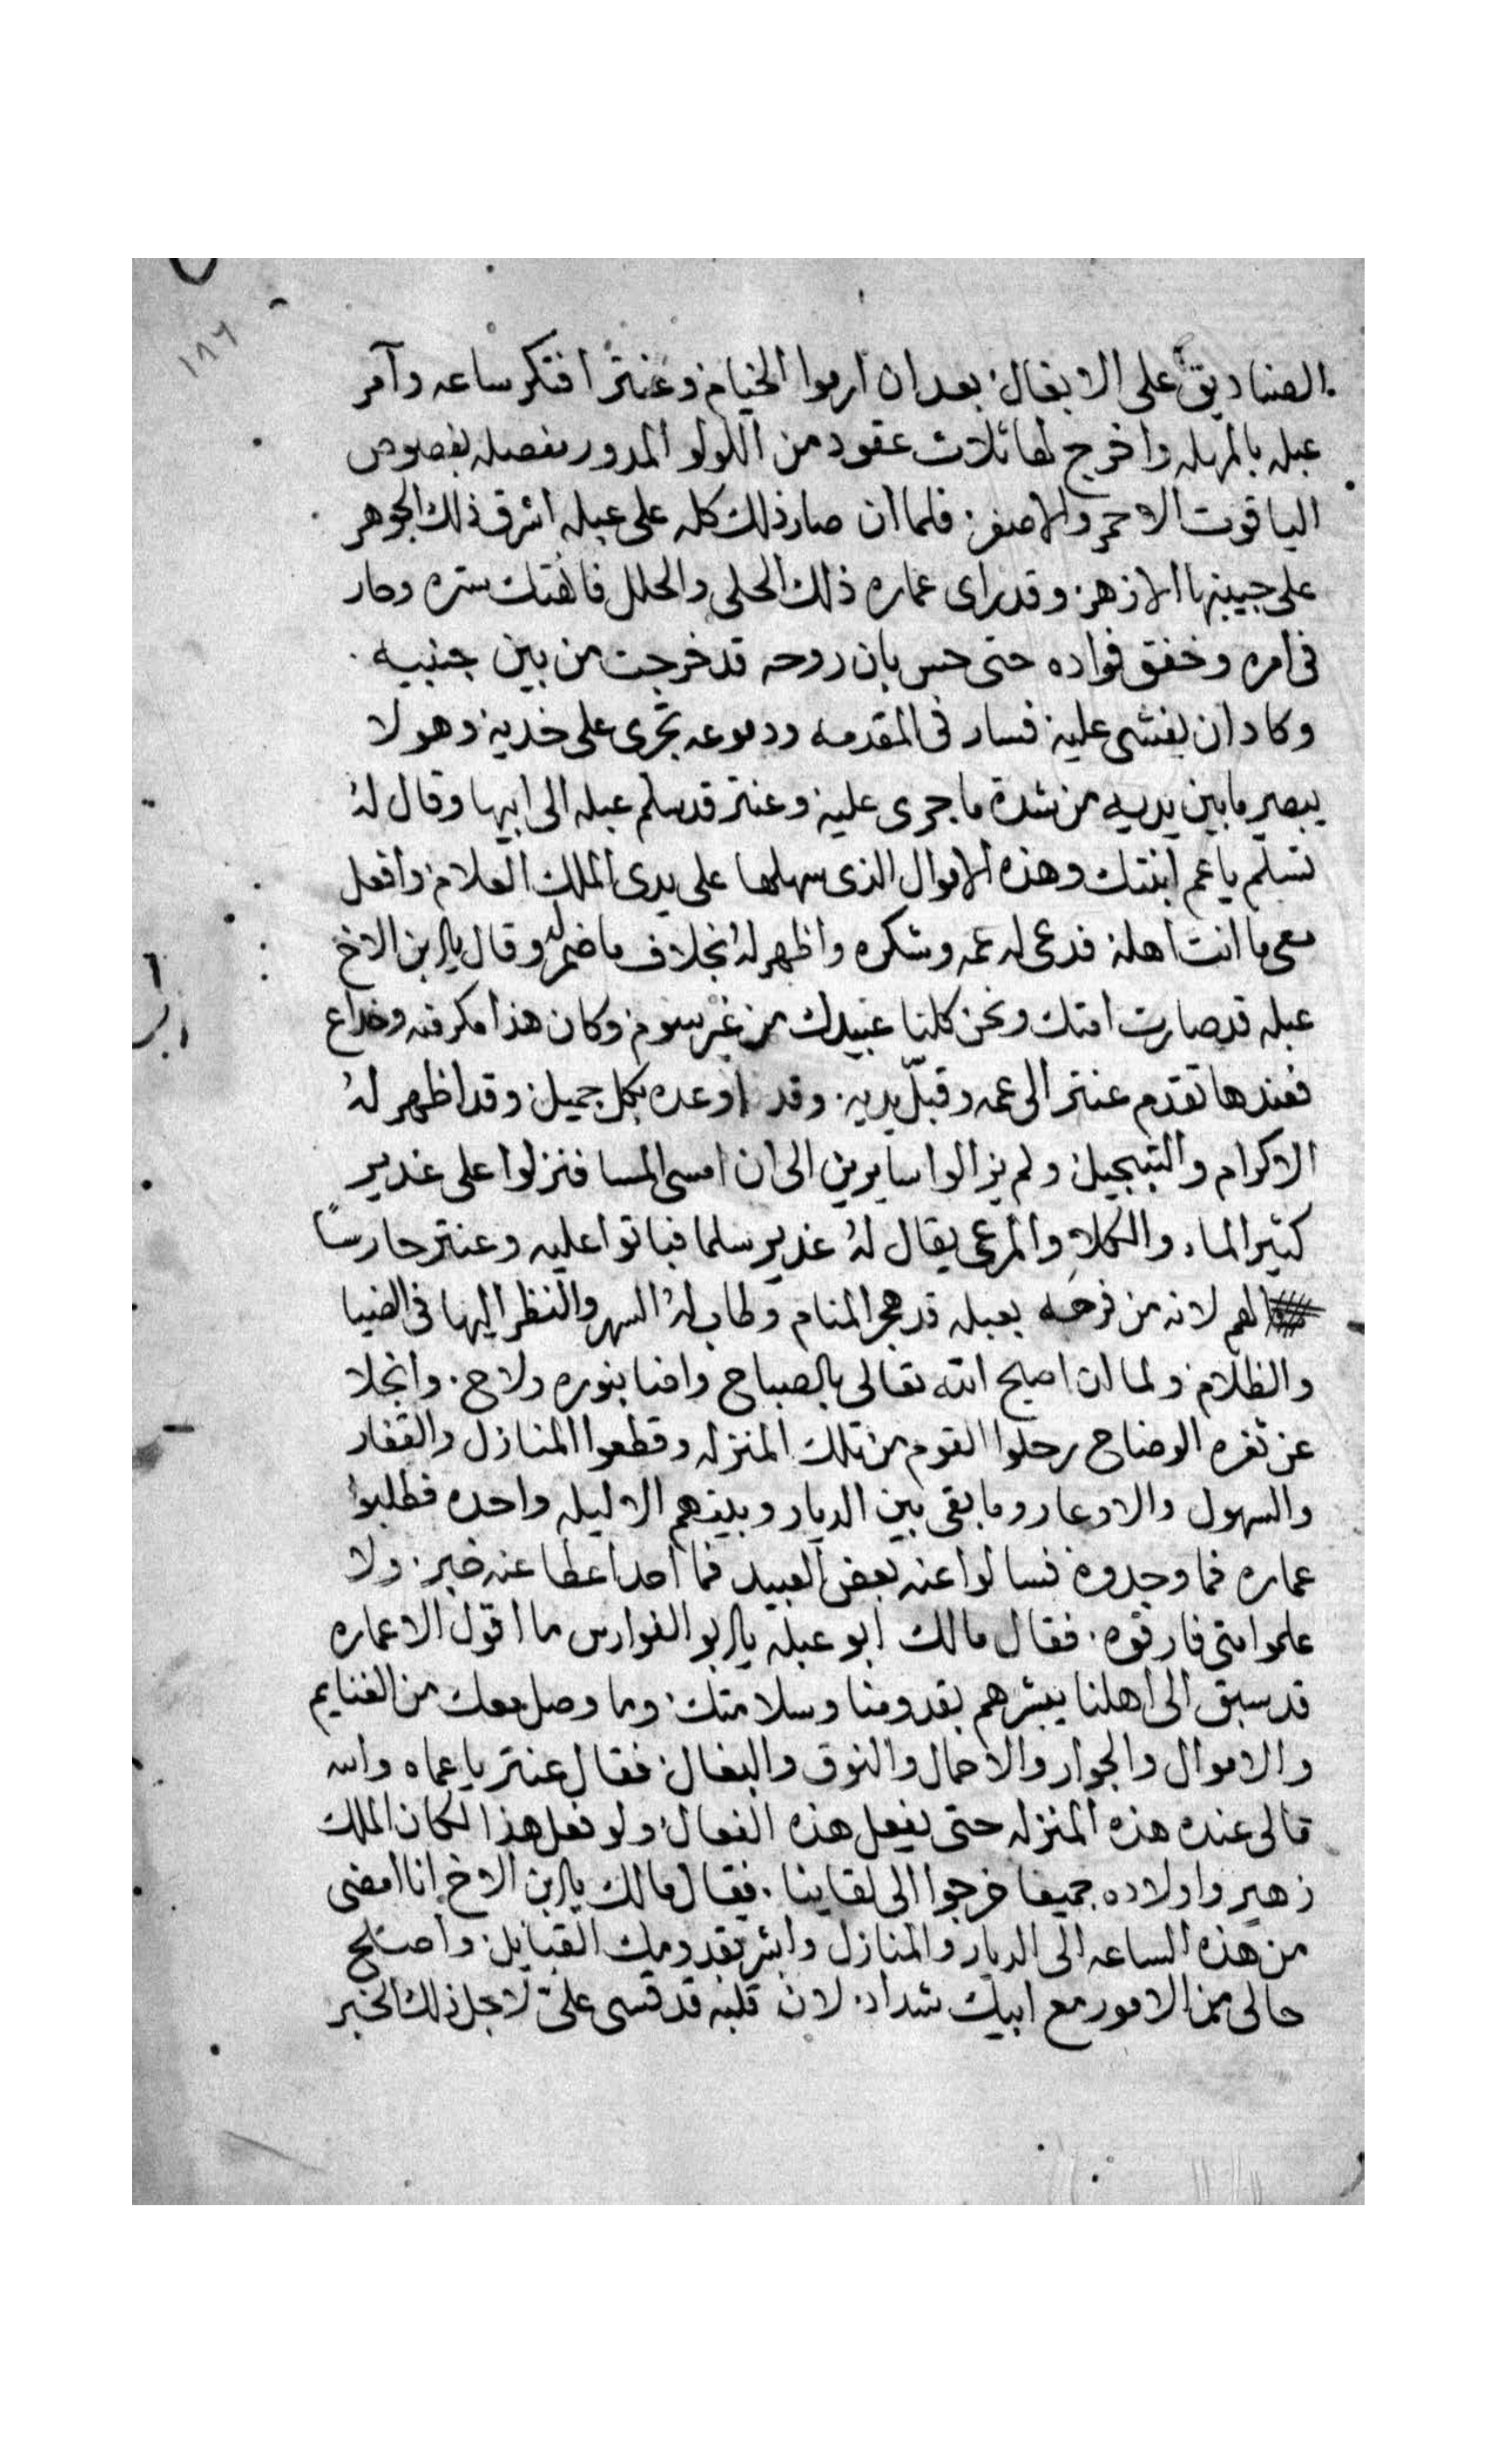 ١٨٦
الصناديق على الابغال بعد ان ارموا الخيام وعنتر افتكر ساعه وآمر
عبله بالمهله واخرج لها ثلاث عقود من اللولو المدور مفصله بفصوص
الياقوت الاحمر والاصفر فلما ان صار ذلك كله على عبله اشرق ذلك الجوهر
على جبينها الازهر وقد راى عماره ذلك الحلى والحلل فانهتك ستره وحار
فى امره وخفق فواده حتى حس بان روحه قد خرجت من بين جنبيه
وكاد ان يغشى عليه فسار فى المقدمه ودموعه تجرى على خديه وهو لا
يبصر ما بين يديه من شدة ما جرى عليه وعنتر قد سلم عبله الى ابيها وقال له
تسلم يا عم ابنتك وهذه الاموال الذى سهلها على يدى الملك العلام وافعل
معى ما انت اهله فدعى له عمه وشكره واظهر له بخلاف ما ضمر له وقال يا ابن الاخ
عبله قد صارت امتك ونحن كلنا عبيدك من غير سوم وكان هذا مكر منه وخداع
فعندها تقدم عنتر الى عمه وقبّل يديه وقد اوعده بكل جميل وقد اظهر له
الاكرام والتبجيل ولم يزالوا سايرين الى ان امسى المسا فنزلوا على غدير
كثير الماء والكلا والمرعى يقال له غدير سلما فباتوا عليه وعنتر حارسًا
لهم لانه من فرحه بعبله قد هجر المنام وطاب له السهر والنظر اليها فى الضيا
والظلام ولما ان اصبح الله تعالى بالصباح واضا بنوره ولاح وانجلا
عن ثغره الوضاح رحلوا القوم من تلك المنزله وقطعوا المنازل والقفار
والسهول والاوعار وما بقى بين الديار وبينهم الا ليله واحده فطلبوا
عماره فما وجدوه فسالوا عنه بعض العبيد فما احدا عطا عنه خبر ولا
علموا متى فارقوه فقال مالك ابو عبله يا ابو الفوارس ما اقول الا عماره
قد سبق الى اهلنا يبشرهم بقدومنا وسلامتك وما وصل معك من الغنايم
والاموال والجوار والاحمال والنوق والبغال فقال عنتر يا عماه والله
مالى عنده هذه المنزله حتى يفعل هذه الفعال ولو فعل هذا لكان الملك
زهير واولاده جميعا خرجوا الى لقاينا فقال مالك يا ابن الاخ انا امضى
من هذه الساعه الى الديار والمنازل وابشر بقدومك القبايل واصلح
حالى من الامور مع ابيك شداد لان قلبه قد قسى علىّ لاجل ذلك الخبر